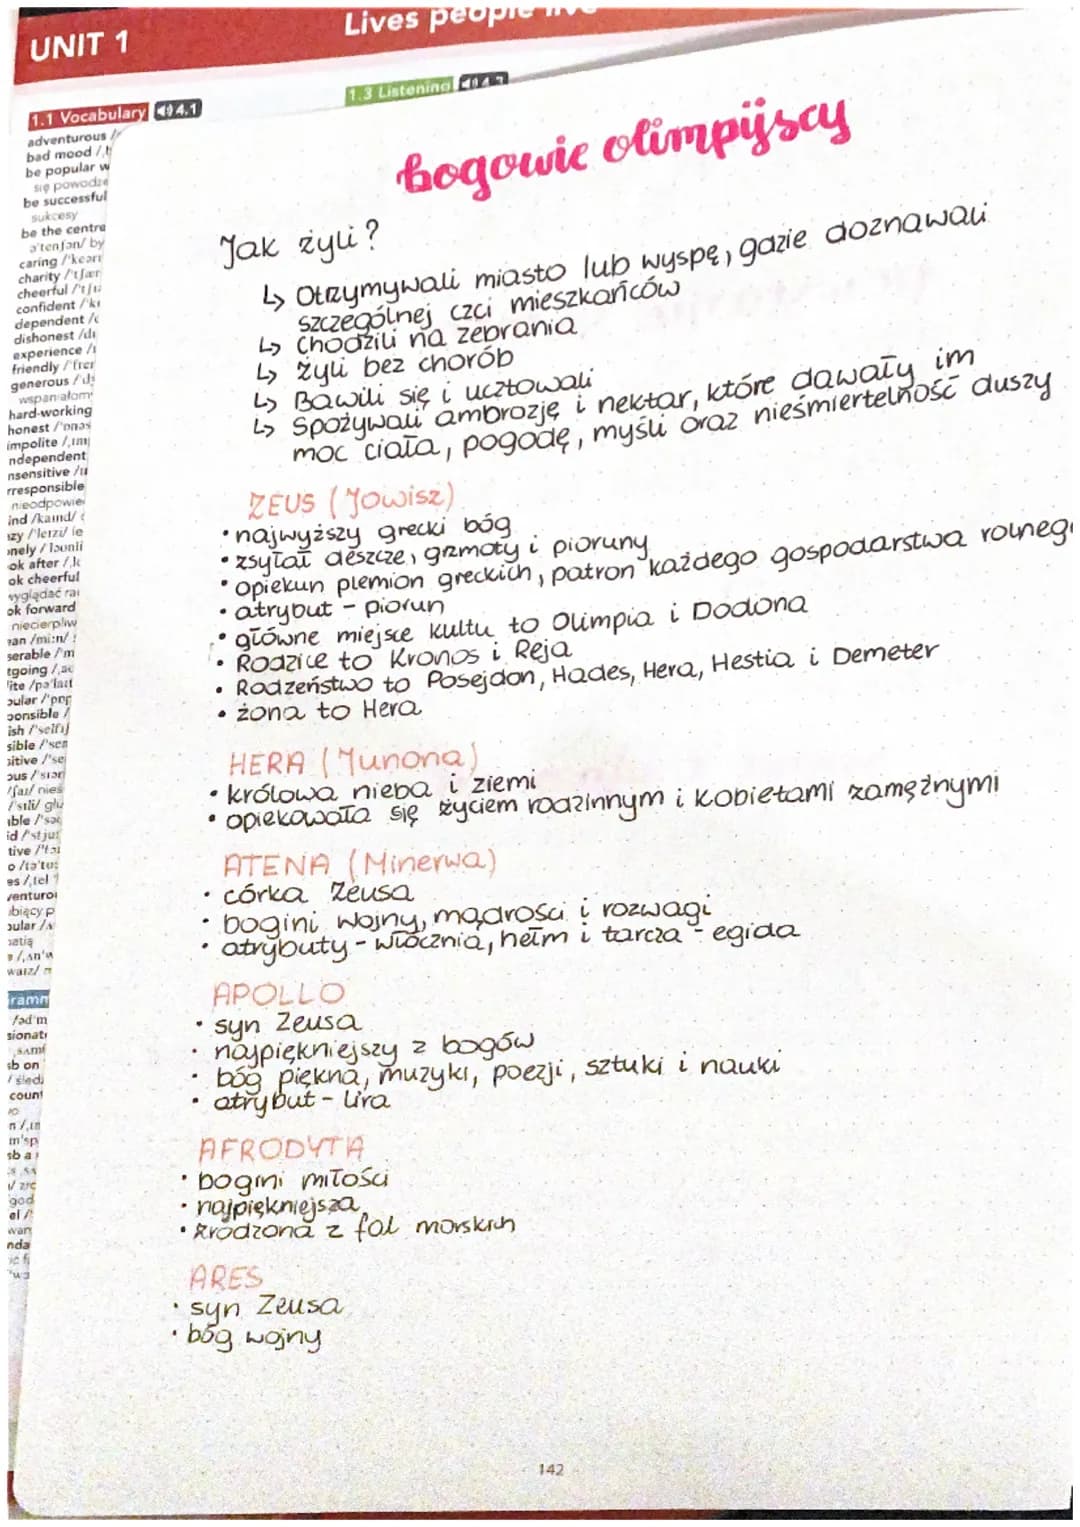 UNIT 1
Lives people live
1.1 Vocabulary 4.1
1.3 Listening
adventurous
bad mood
be popular w
się powodze
be successful
sukcesy
be the centre
ə'tenʃən/ by
caring
charity
cheerful
confident
dependent
dishonest
experience
friendly
generous
wspaniałom
hard-working
honest
impolite
ndependent
nsensitive
rresponsible
nieodpowie
ind /kaɪnd/
zy /'leɪzi/ le
nely
ok after
ok cheerful
wyglądać ra
ok forward
niecierpliw
ean /miːn/
serable
tgoing
ite
pular
ponsible
ish
sible
sitive
bogowie olimpijscy
Jak żyli?
↳ Otrzymywali miasto lub wyspę, gdzie doznawali
szczególnej czci mieszkańców
↳ Chodzili na zebrania
↳ żyli bez chorób
↳ Bawili się i ucztowali
↳ Spożywali ambrozję i nektar, które dawały im
moc ciała, pogodę, myśli oraz nieśmiertelność duszy
ZEUS (Jowisz)
• najwyższy grecki bóg
• zsyłał deszcze, grzmoty i pioruny
• opiekun plemion greckich, patron każdego gospodarstwa rolnego
• atrybut - piorun
• główne miejsce kultu to Olimpia i Dodona
• Rodzice to Kronos i Reja
• Rodzeństwo to Posejdon, Hades, Hera, Hestia i Demeter
• żona to Hera
HERA (Junona)
• królowa nieba i ziemi
• opiekowała się życiem rodzinnym i kobietami zamężnymi
ATENA (Minerwa)
• córka Zeusa
• bogini wojny, mądrości i rozwagi
• atrybuty - włócznia, hełm i tarcza - egida
APOLLO
• syn Zeusa
• najpiękniejszy z bogów
• bóg piękna, muzyki, poezji, sztuki i nauki
• atrybut - lira
AFRODYTA
• bogini miłości
• najpiękniejsza
• zrodzona z fal morskich
ARES
• syn Zeusa
• bóg wojny
142